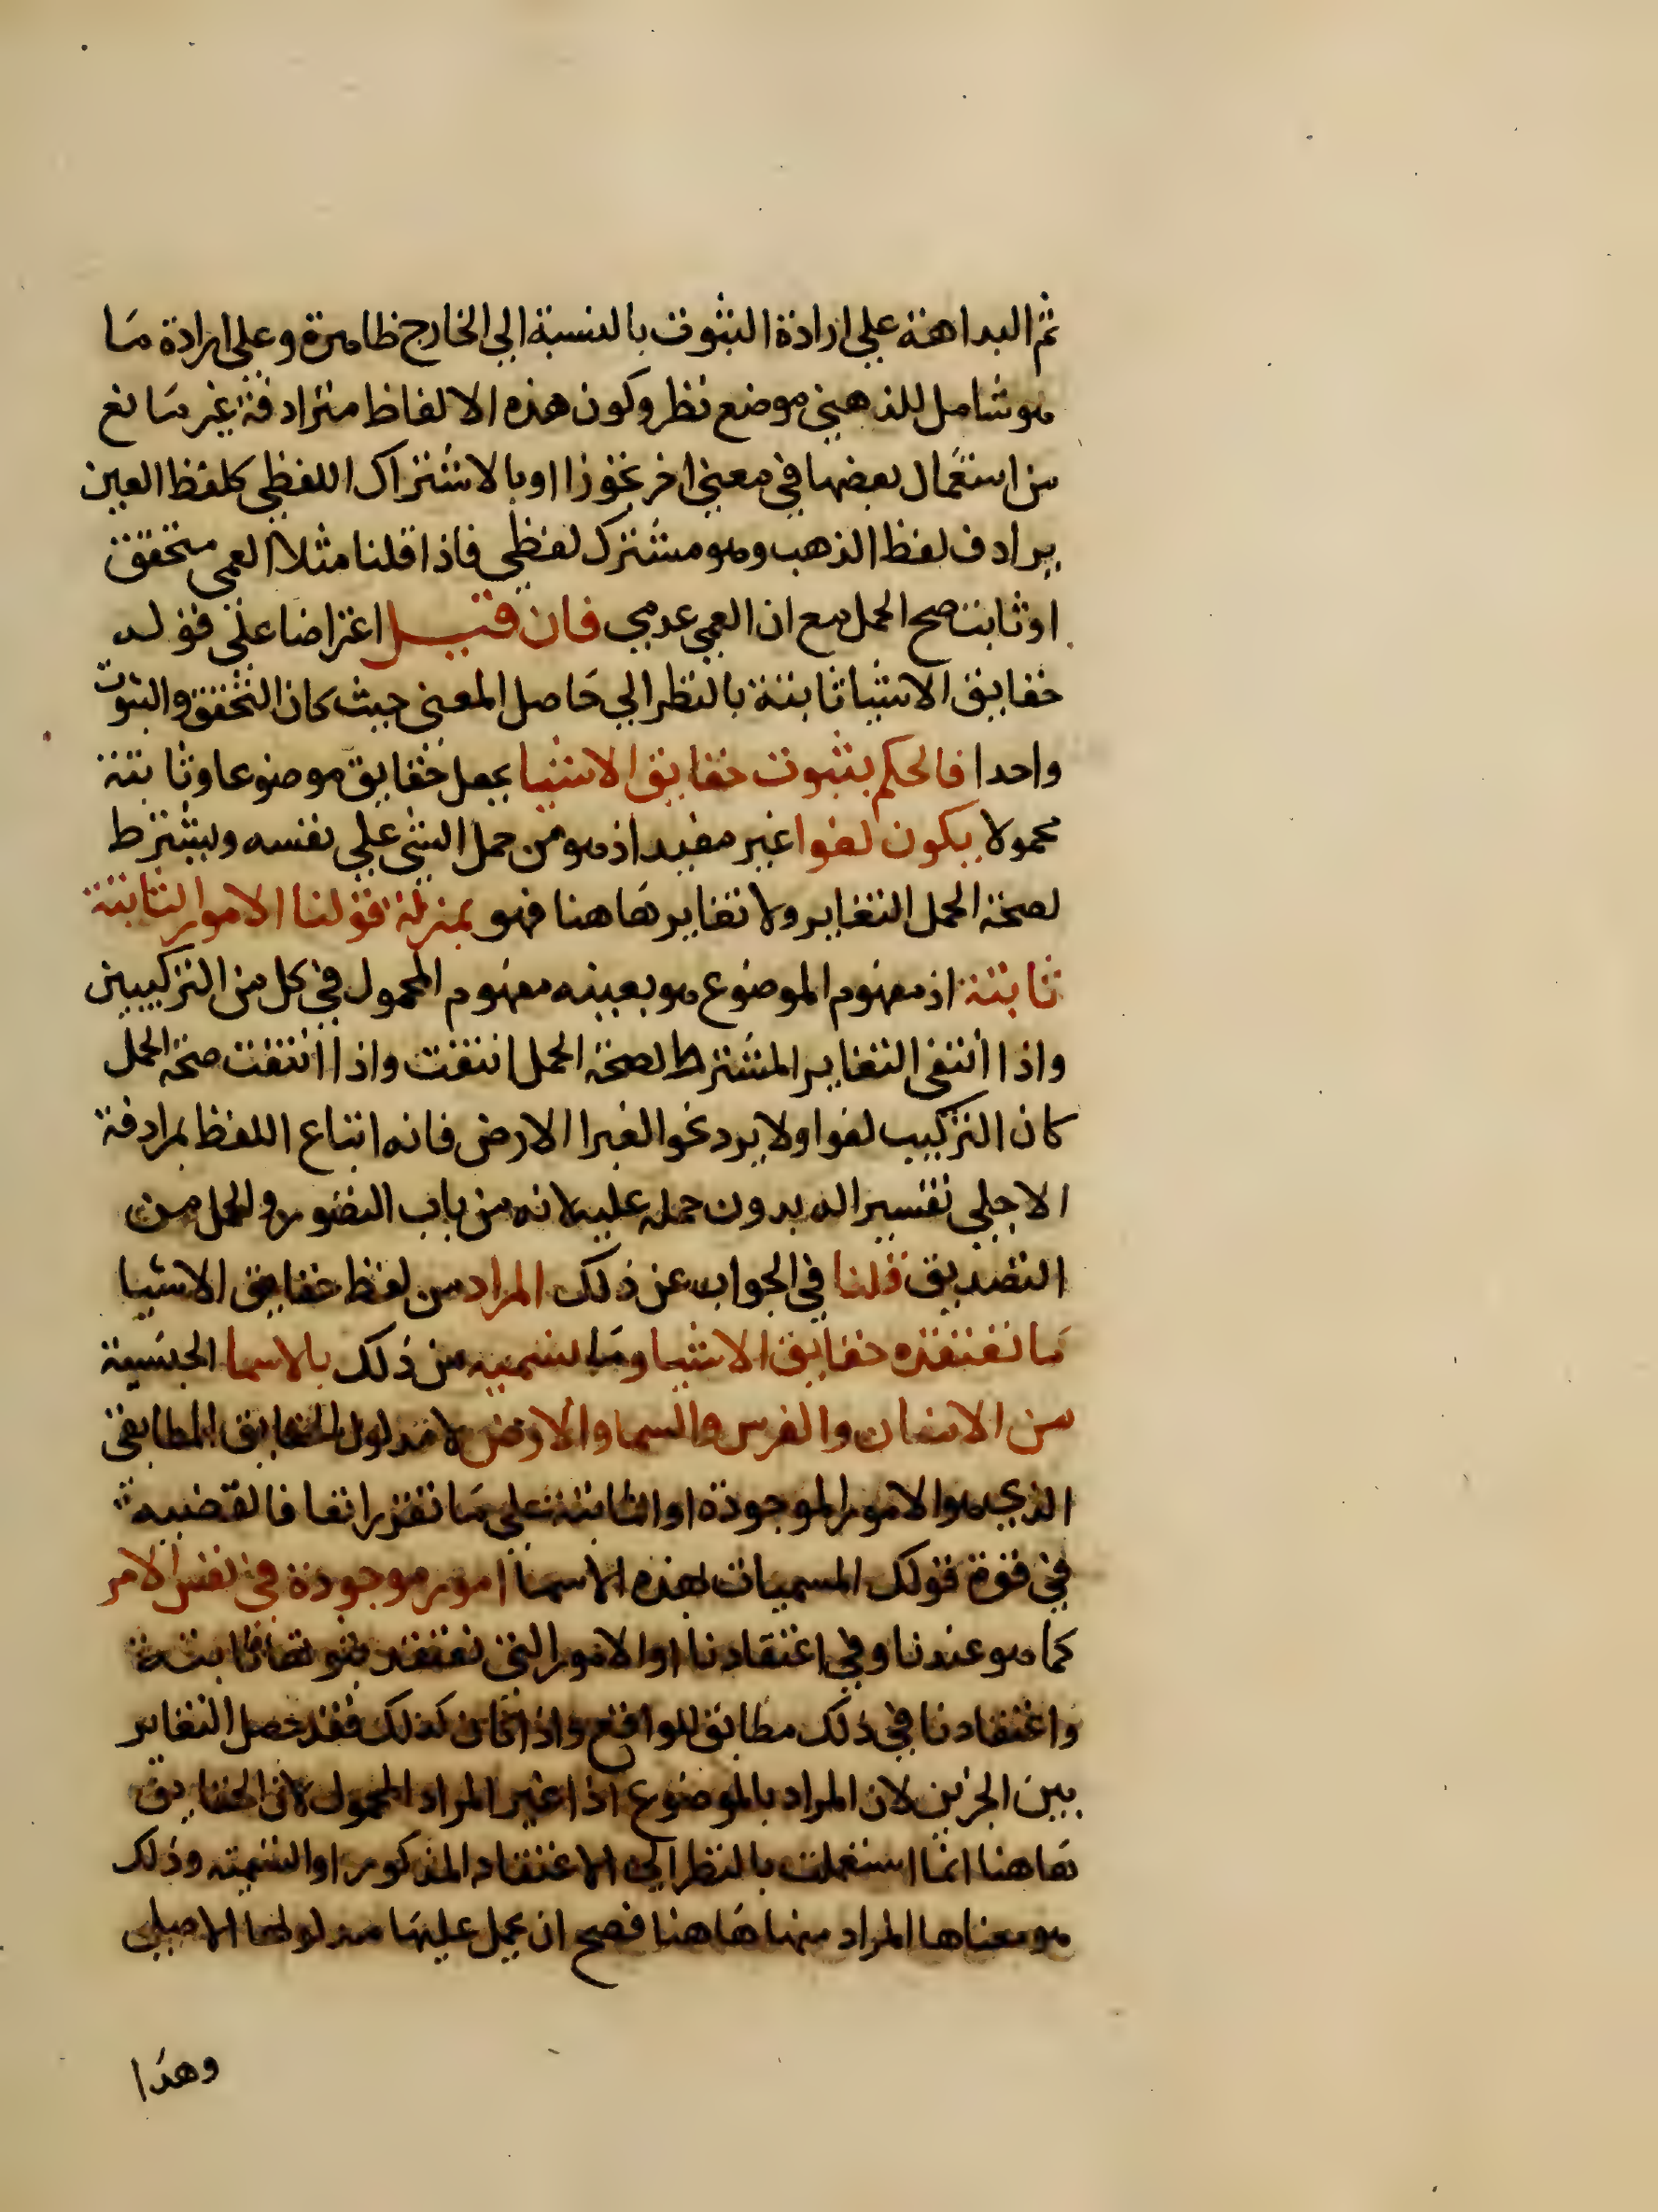 ثم البداهة علي ارادة الثبوت بالنسبة الي الخارج ظاهرة وعلي ارادة ما
هو شامل للذهني موضع نظر وكون هذه الالفاظ مترادفة غير مانع
من استعمال بعضها في معني اخر تجوزا او بالاشتراك اللفظي كلفظ العين
يرادف لفظ الذهب وهو مشترك لفظي فاذا قلنا مثلا العمي متحقق
او ثابت صح الحمل مع ان العمي عدمي فان قيل اعتراضا علي قوله
حقايق الاشيا ثابتة بالنظر الي حاصل المعني حيث كان التحقق والثبوت
واحدا فالحكم بثبوت حقايق الاشيا بجعل حقايق موضوعا وثابتة
محمولا يكون لغوا غير مفيد اذ هو من حمل الشي علي نفسه ويشترط
لصحة الحمل التغاير ولا تغاير هاهنا فهو بمنزلة قولنا الامور الثابتة
ثابتة اذ مفهوم الموضوع هو بعينه مفهوم المحمول في كل من التركيبين
واذا انتفي التغاير المشترط لصحة الحمل انتفت واذا انتفت صحة الحمل
كان التركيب لغوا ولا يرد نحو الغبرا الارض فانه اتباع اللفظ بمرادفة
الاجلي تفسيرا له بدون حمله عليه لانه من باب التصور والحمل من
التصديق قلنا في الجواب عن ذلك المراد من لفظ حقايق الاشيا
ما نعتقده حقايق الاشيا وما نسميه من ذلك بالاسما الجنسية
من الانسان والفرس والسما والارض لا مدلول الحقايق المطابقي
الذي هو الامور الموجودة او الثابتة علي ما تقرر انفا فالقضيه
في قوة قولك المسميات بهذه الاسما امور موجودة في نفس الامر
كما هو عندنا وفي اعتقادنا او الامور التي نعتقد ثبوتها ثابتة
واعتقادنا في ذلك مطابق للواقع واذا كان كذلك فقد حصل التغاير
بين الجزين لان المراد بالموضوع اذا غير المراد المحمول لان الحقايق
هاهنا انما استعملت بالنظر الي الاعتقاد المذكور او التسمية وذلك
هو معناها المراد منها هاهنا فصح ان يحمل عليها مدلولها الاصلي
وهذا